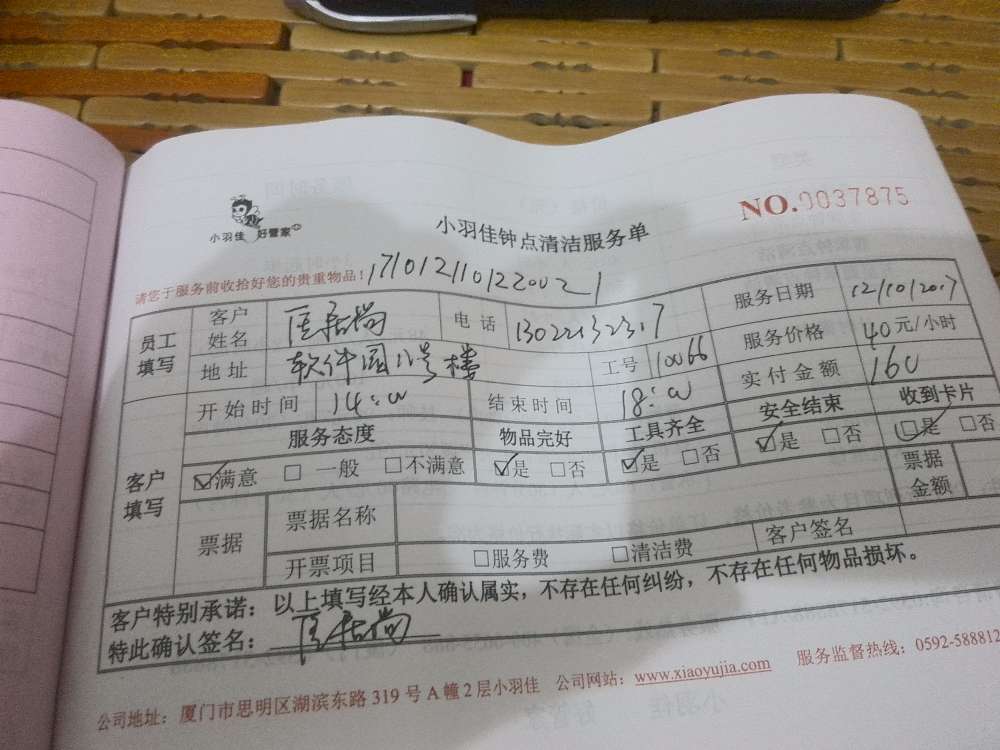 小羽佳 好管家
小羽佳钟点清洁服务单
NO.0037875
请您于服务前收拾好您的贵重物品！17101211012200221
员工填写 客户姓名 电话 服务日期 12/10/2017
地址 软件园 号楼 工号 10066 服务价格 40元/小时
开始时间 14:00 结束时间 18:00 实付金额 160
客户填写 服务态度 物品完好 工具齐全 安全结束 收到卡片
☑满意 □一般 □不满意 ☑是 □否 ☑是 □否 ☑是 □否 ☑是 □否
票据 票据名称 票据金额
开票项目 □服务费 □清洁费 客户签名
客户特别承诺：以上填写经本人确认属实，不存在任何纠纷，不存在任何物品损坏。
特此确认签名：
公司地址：厦门市思明区湖滨东路319号A幢2层小羽佳 公司网站：www.xiaoyujia.com 服务监督热线：0592-588812